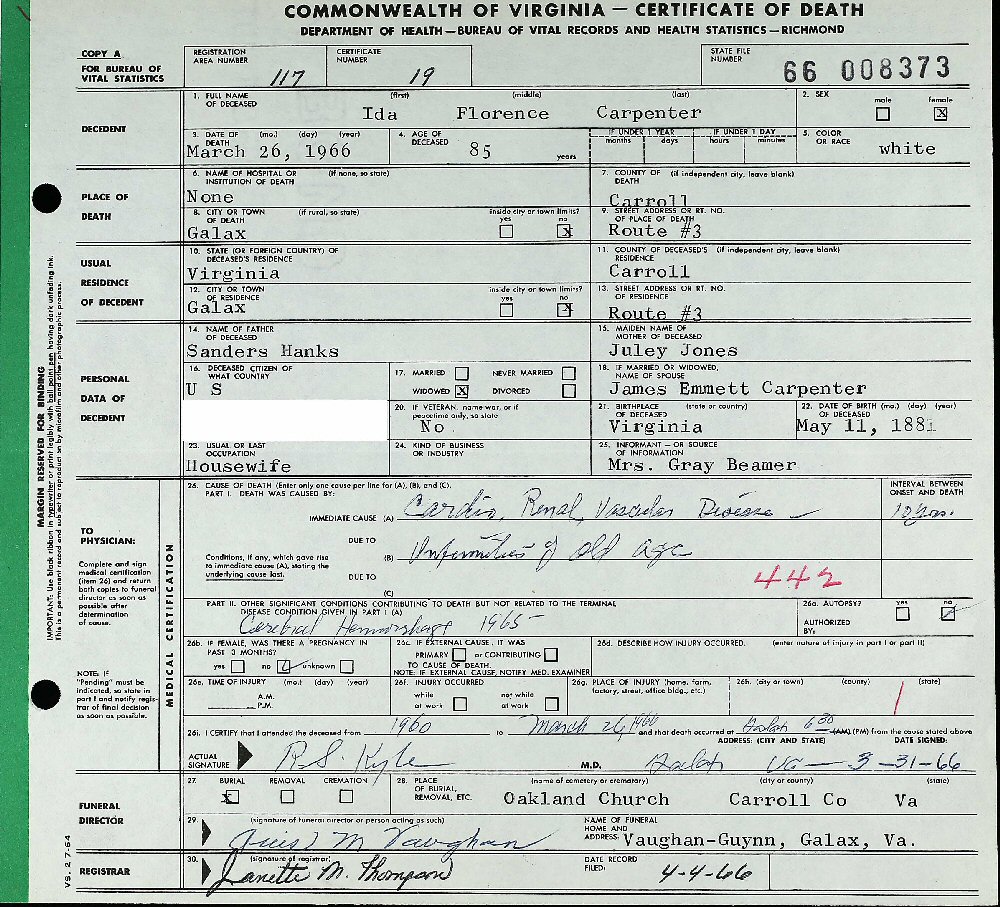 COMMONWEALTH OF VIRGINIA — CERTIFICATE OF DEATH
DEPARTMENT OF HEALTH—BUREAU OF VITAL RECORDS AND HEALTH STATISTICS—RICHMOND
COPY A
FOR BUREAU OF VITAL STATISTICS
REGISTRATION AREA NUMBER 117
CERTIFICATE NUMBER 19
STATE FILE NUMBER 66 008373
DECEDENT
1. FULL NAME OF DECEASED (first) (middle) (last)
Ida Florence Carpenter
2. SEX male female X
3. DATE OF DEATH (mo.) (day) (year)
March 26, 1966
4. AGE OF DECEASED 85 years
IF UNDER 1 YEAR months days
IF UNDER 1 DAY hours minutes
5. COLOR OR RACE white
PLACE OF DEATH
6. NAME OF HOSPITAL OR INSTITUTION OF DEATH (if none, so state)
None
7. COUNTY OF DEATH (if independent city, leave blank)
Carroll
8. CITY OR TOWN OF DEATH (if rural, so state) inside city or town limits? yes no X
Galax
9. STREET ADDRESS OR RT. NO. OF PLACE OF DEATH
Route #3
USUAL RESIDENCE OF DECEDENT
10. STATE (OR FOREIGN COUNTRY) OF DECEASED'S RESIDENCE
Virginia
11. COUNTY OF DECEASED'S RESIDENCE (if independent city, leave blank)
Carroll
12. CITY OR TOWN OF RESIDENCE inside city or town limits? yes no X
Galax
13. STREET ADDRESS OR RT. NO. OF RESIDENCE
Route #3
PERSONAL DATA OF DECEDENT
14. NAME OF FATHER OF DECEASED
Sanders Hanks
15. MAIDEN NAME OF MOTHER OF DECEASED
Juley Jones
16. DECEASED CITIZEN OF WHAT COUNTRY
U S
17. MARRIED NEVER MARRIED
WIDOWED X DIVORCED
18. IF MARRIED OR WIDOWED, NAME OF SPOUSE
James Emmett Carpenter
20. IF VETERAN, name war, or if peacetime only, so state
No
21. BIRTHPLACE OF DECEASED (state or country)
Virginia
22. DATE OF BIRTH OF DECEASED (mo.) (day) (year)
May 11, 1881
23. USUAL OR LAST OCCUPATION
Housewife
24. KIND OF BUSINESS OR INDUSTRY
25. INFORMANT — OR SOURCE OF INFORMATION
Mrs. Gray Beamer
MARGIN RESERVED FOR BINDING
IMPORTANT: Use black ribbon in typewriter or print legibly with ball point pen having dark unfading ink.
This is a permanent record and subject to reproduction by microfilm and other photographic process.
VS. 2 7-64
TO PHYSICIAN:
Complete and sign medical certification (item 26) and return both copies to funeral director as soon as possible after determination of cause.
NOTE: If "Pending" must be indicated, so state in part I and notify registrar of final decision as soon as possible.
MEDICAL CERTIFICATION
26. CAUSE OF DEATH (Enter only one cause per line for (A), (B), and (C).
PART I. DEATH WAS CAUSED BY:
INTERVAL BETWEEN ONSET AND DEATH
IMMEDIATE CAUSE (A) Cardio, Renal, Vascular Disease 10 yrs.
DUE TO
Conditions, if any, which gave rise to immediate cause (A), stating the underlying cause last.
(B) Infirmities of old age
DUE TO
(C)
442
PART II. OTHER SIGNIFICANT CONDITIONS CONTRIBUTING TO DEATH BUT NOT RELATED TO THE TERMINAL DISEASE CONDITION GIVEN IN PART I (A)
Cerebral Hemorrhage 1965
26a. AUTOPSY? yes no
AUTHORIZED BY:
26b. IF FEMALE, WAS THERE A PREGNANCY IN PAST 3 MONTHS?
yes no unknown
26c. IF EXTERNAL CAUSE, IT WAS
PRIMARY or CONTRIBUTING
TO CAUSE OF DEATH.
NOTE: IF EXTERNAL CAUSE, NOTIFY MED. EXAMINER
26d. DESCRIBE HOW INJURY OCCURRED. (enter nature of injury in part I or part II)
26e. TIME OF INJURY (mo.) (day) (year)
A.M.
P.M.
26f. INJURY OCCURRED
while at work not while at work
26g. PLACE OF INJURY (home, farm, factory, street, office bldg., etc.)
26h. (city or town) (county) (state)
26i. I CERTIFY that I attended the deceased from 1960 to March 26, 1966 and that death occurred at 6 30 (AM) (PM) from the cause stated above
ACTUAL SIGNATURE R.S. Kyle M.D.
ADDRESS: (CITY AND STATE) DATE SIGNED:
Galax Va 3-31-66
FUNERAL DIRECTOR
27. BURIAL X REMOVAL CREMATION
28. PLACE OF BURIAL, REMOVAL, ETC. (name of cemetery or crematory) (city or county) (state)
Oakland Church Carroll Co Va
29. (signature of funeral director or person acting as such)
M Vaughan
NAME OF FUNERAL HOME AND ADDRESS: Vaughan-Guynn, Galax, Va.
REGISTRAR
30. (signature of registrar)
Janette M. Thompson
DATE RECORD FILED: 4-4-66